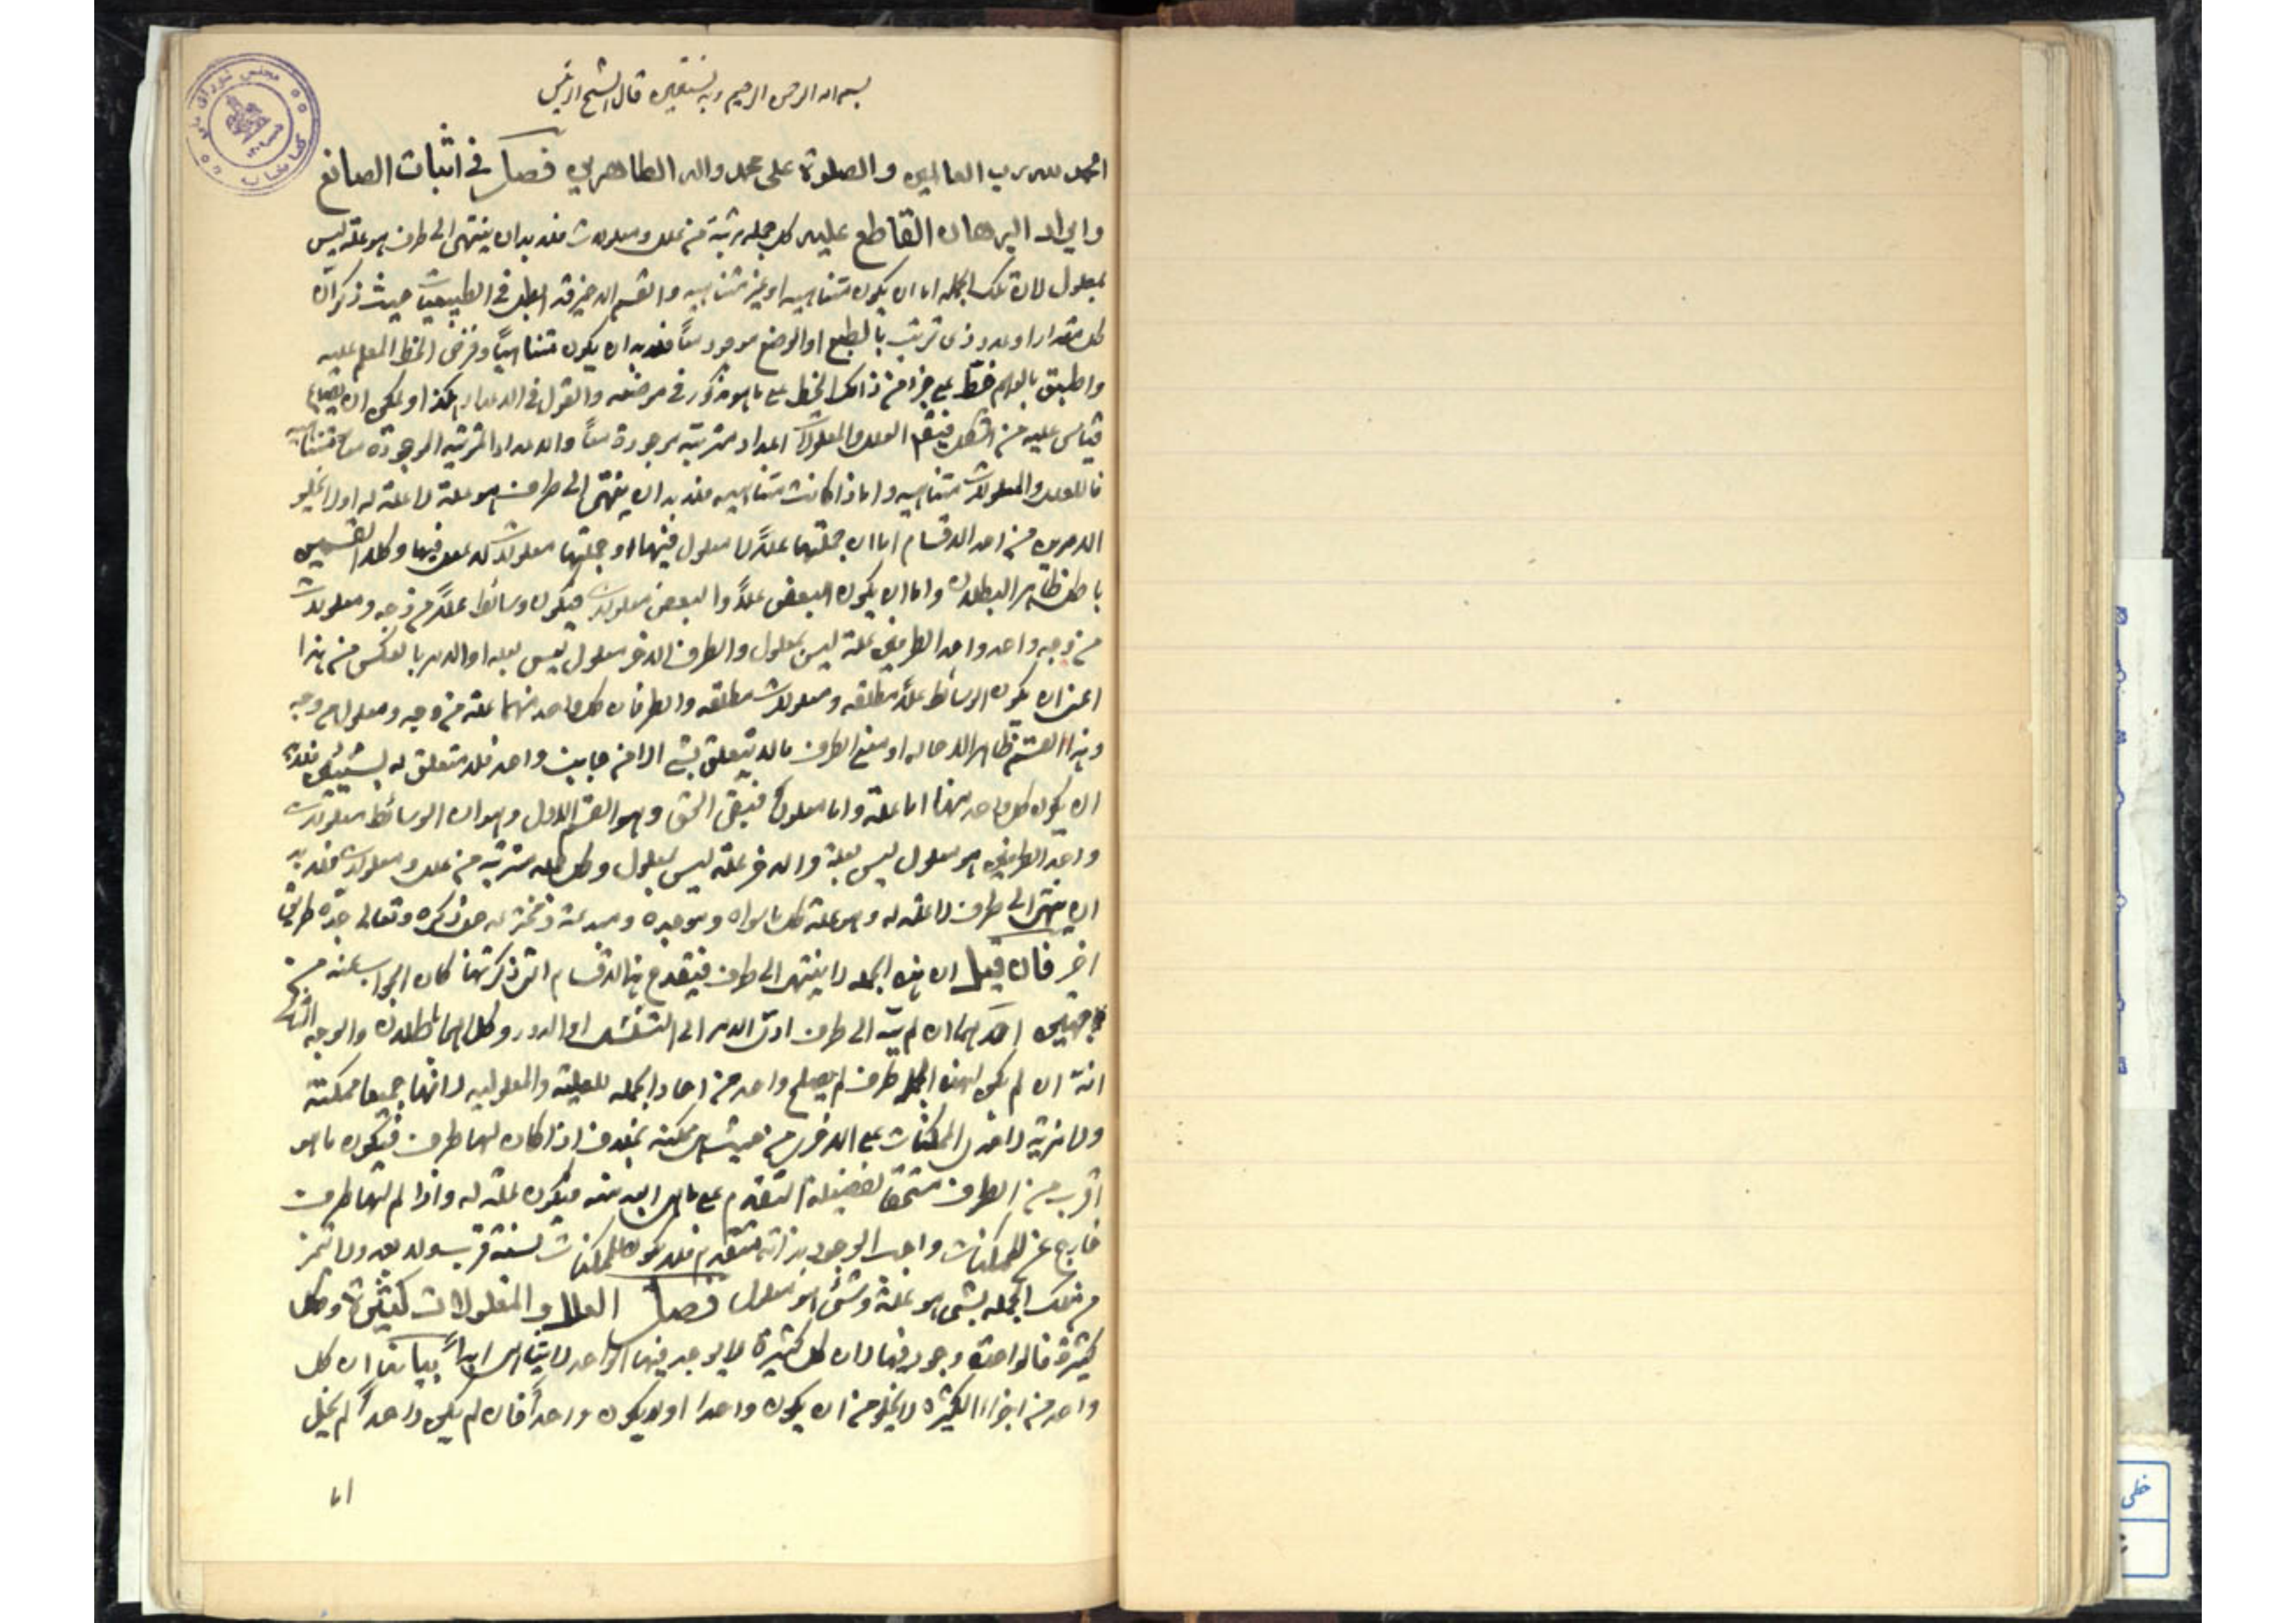 بسم الله الرحمن الرحيم وبه نستعين قال الشيخ الرئيس
الحمد لله رب العالمين والصلوة على محمد واله الطاهرين فصل في اثبات الصانع
وايراد البرهان القاطع عليه كل جمله مرتبة من علل ومعلولات فلا بد ان ينتهى الى طرف هو علة ليس
بمعلول لان تلك الجمله اما ان يكون متناهيه او غير متناهيه والقسم الاخير قد ابطل في الطبيعيات حيث ذكر ان
كل مقدار او عدد ذى ترتيب بالطبع او الوضع موجود معاً فلا بد ان يكون متناهياً وفرض الخط المعلم عليه
واطبق بالوهم خط على جزء من ذلك الخط على ما هو مذكور في موضعه والقول في الاعداد هكذا او يمكن ان
قياس عليه من الشكل العلل والمعلولات اعداد مترتبه موجودة معاً والاعداد المترتبه الموجودة معا متناهيه
فالعلل والمعلولات متناهيه واما اذا كانت متناهيه فلا بد ان ينتهى الى طرف هو علة لا علة له اولا يخلو
الامرين من احد الاقسام اما ان جملتها عللاً لا معلول فيها او جملتها معلولات لا علل فيها وكلا القسمين
باطل ظاهر البطلان واما ان يكون البعض عللاً والبعض معلولات فيكون وسائط عللاً من وجه ومعلولات
من وجه واحد واحد الطرفين علة ليس بمعلول والطرف الاخر معلول ليس بعله او الامر بالعكس من هذا
اعنى ان يكون الوسائط عللاً مطلقه ومعلولات مطلقه والطرفان كل واحد منهما علة من وجه ومعلول من وجه
وهذا القسم ظاهر الاحاله او معنى الطرف ما لا يتعلق بشئ الا من جانب واحد فلا متعلق له بشيئين فلا بد
ان يكون كل واحد منهما اما علة واما معلولاً فبقى الحق وهو القسم الاول وهو ان الوسائط معلولات
واحد الطرفين هو معلول ليس بعلة والاخر علة ليس بمعلول وكل جمله مترتبة من علل ومعلولات فلا بد
ان ينتهى الى طرف لا علة له وهو علة كل ما سواه وموجده ومبدعه ومخترعه جل ذكره وتعالى جده طريق
اخر فان قيل ان هذه الجمله لا ينتهى الى طرف فينقدح هذا الاقسام التى ذكرتها كان الجواب عنه من
وجهين احدهما ان لم ينته الى طرف ادى الامر الى التسلسل او الدور وكلاهما باطلان والوجه الثانى
انه ان لم يكن لهذه الجمله طرف لم يصلح واحد من احاد الجمله للعلية والمعلوليه لانها جميعا ممكنة
ولا مزية لاحدى الممكنات على الاخرى من حيث هى ممكنه بخلاف اذا كان لها طرف فيكون ما هو
اقرب من الطرف مستحقا لفضيلة التقدم على ما هو ابعد منه فيكون علة له واذا لم لها طرف
خارج عن الممكنات واجب الوجود بذاته متقدم فلا يكون للممكنات نسبة قرب ولا بعد ولا تميز
من تلك الجمله شئ هو علة وشئ هو معلول فصل العلل والمعلولات كثيرة وكل
كثيرة فالواحد موجود فيها لان كل كثيرة لا يوجد فيها الواحد لا يتناهى ابداً بيانه ان كل
واحد من اجزاء الكثيره لا يخلو من ان يكون واحدا او لا يكون واحداً فان لم يكن واحداً لم يخل
اما
مجلس شورای ملی
کتابخانه